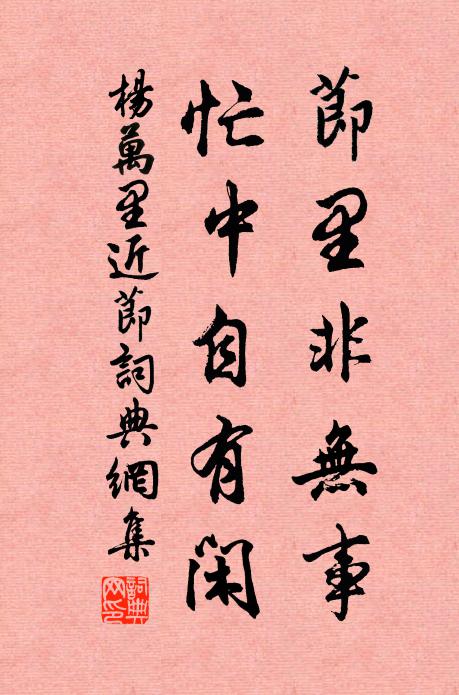 節里非無事
忙中自有閑
楊萬里近節詞典網集
詞典網印